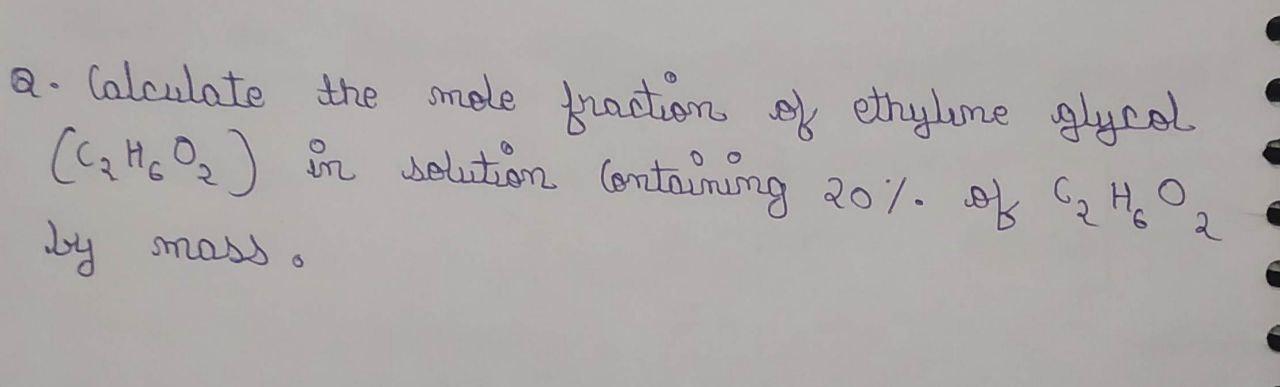 Q. Calculate the mole fraction of ethylene glycol
(C₂H₆O₂) in solution Containing 20%. of C₂H₆O₂
by mass.